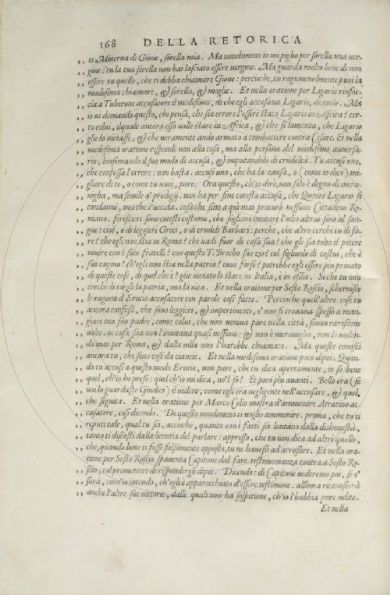 168 DELLA RETORICA
„ o Minerva di Giove, sorella mia. Ma nondimeno in me piglio per sorella una ver-
„ gine: tu la tua sorella non hai lasciato essere vergine. Ma guarda molto bene di non
„ essere tu quello, che ti debba chiamare Giove: percioche, tu ragionevolmente puoi la
„ medesima chiamare, & sorella, & moglie. Et nella oratione per Ligario rinfac-
„ cia a Tuberone accusatore il medesimo, di che egli accusava Ligario, dicendo. Ma
„ io domando questo, chi pensa, che sia errore l'essere stato Ligario in Africa? cer-
„ to colui, il quale ancora esso volle stare in Africa, & che si lamenta, che Ligario
„ glie lo vietasse, & che veramente andò armato a combattere contra Cesare. Et nella
„ medesima oratione risponde non alla cosa, ma alla persona del medesimo avversa-
„ rio, biasimando il suo modo di accusa, & imputandolo di crudeltà. Tu accusi uno,
„ che confessa l'errore: non basta: accusi uno, che ha la causa, o (come io dico) mi-
„ gliore di te, o come tu vuoi, pare. Ora questo, ch'io dirò, non solo è degno di mera-
„ viglia, ma simile a' prodigij. non ha per fine cotesta accusa, che Quinto Ligario si
„ condanni, ma che s'uccida. cosa che sino a qui mai procurò nessuno Cittadino Ro-
„ mano. forestieri sono cotesti costumi, che sogliono incitare l'odio altrui sino al san-
„ gue: cioè, o di leggieri Greci, o di crudeli Barbari: perche, che altro cerchi tu di fa-
„ re? che egli non stia in Roma? che vadi fuor di casa sua? che gli sia tolto il potere
„ vivere con i suoi fratelli? con questo T. Brocho suo zio? col figliuolo di costui, che è
„ suo cugino? ch'egli non stia nella patria?
„ di queste cose, di quel che è? gia vietato lo stare in Italia, è in esilio. Si che tu non
„ cerchi di torgli la patria, ma la vita. Et nella oratione per Sesto Roscio, schernisce
„ le ragioni d'Erucio accusatore con parole così fatte. Percioche quell'altre cose tu
„ ancora confessi, che sono leggieri, & impertinenti, e' non si trovava spesso a man-
„ giare con suo padre, come colui, che non veniva pure nella città, se non rarissime
„ volte. in casa sua quasi nessuno l'invitava. ne meraviglia, come colui, che non vive-
„ di qua per Roma, & dalla villa non l'harebbe chiamato. Ma queste conosci
„ ancora tu, che sono cose da ciancie. Et nella medesima oratione poco dipoi. Quan-
„ do tu accusi a questo modo Erucio, non pare, che tu dica apertamente, io sò bene
„ quel, ch'io ho preso: quel ch'io mi dica, no'l sò? Et poco piu avanti. Bello era (se
„ voi lo guardaste Giudici) il vedere, come egli era negligente nell'accusare, & quel,
„ che seguita. Et nella oratione per Marco Celio mostra d'ammonire Atratino ac-
„ cusatore, così dicendo. Di questo nondimeno ti voglio ammonire. prima, che tu ti
„ reputi tale, qual tu sei, accioche, quanto con i fatti sei lontano dalla dishonestà,
„ tanto ti discosti dalla licentia del parlare: appresso, che tu non dica ad altri quello,
„ che, quando bene ti fusse falsamente opposto, tu ne havesti ad arrossire. Et nella ora-
„ tione per Sesto Roscio spaventa Capitone dal fare testimonanza contra a Sesto Ro-
„ scio, col promettere di rispondergli dipoi. Dicendo: di Capitone vederemo noi, se e'
„ sarà, com'io intendo, ch'egli è apparecchiato d'essere testimone. allhora riconoscerà
„ anche l'altre sue vittorie, dalle quali non ha sospitione, ch'io l'habbia pure udito.
Et nella